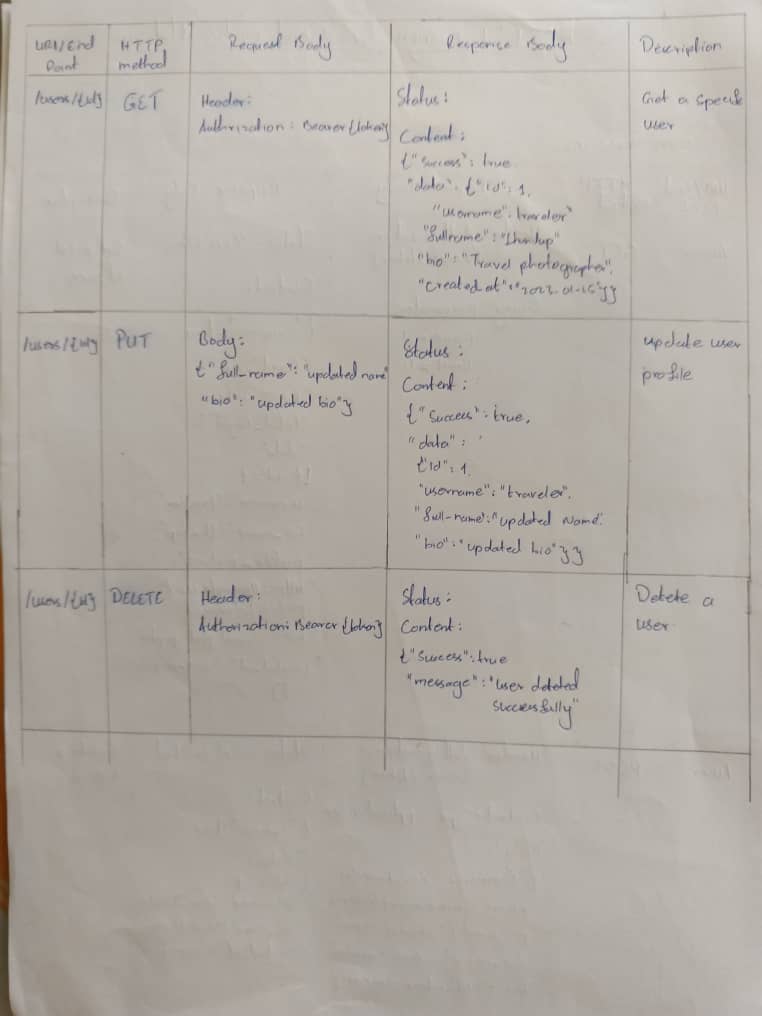 URI/End Point
HTTP method
Request Body
Response Body
Description
/users/{id}
GET
Header:
Authrization: Bearer {token}
Status:
Content:
{"success": true
"data": {"id": 1,
"username": traveler"
"fullname": "Lhundup"
"bio": "Travel photographer",
"created at": "2023-01-15"}}
Get a specific
user
/users/{id}
PUT
Body:
{"full-name": "updated name"
"bio": "updated bio"}
Status:
Content:
{"success": true,
"data":
{"id": 1,
"username": "traveler",
"full-name": "updated Name"
"bio": "updated bio"}}
update user
profile
/users/{id}
DELETE
Header:
Authorization: Bearer {token}
Status:
Content:
{"success": true
"message": "user deleted
successfully"
Delete a
user